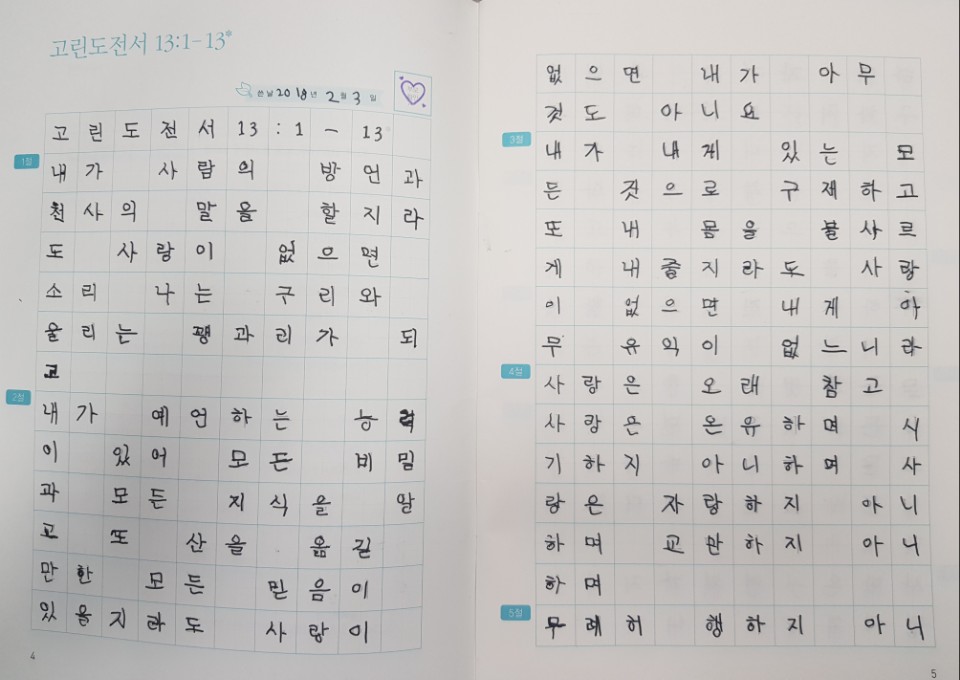 고린도전서 13:1-13
쓴날 2018년 2월 3일
고린도전서 13:1-13
1절
내가 사람의 방언과
천사의 말을 할지라
도 사랑이 없으면
소리 나는 구리와
울리는 꽹과리가 되
고
2절
내가 예언하는 능력
이 있어 모든 비밀
과 모든 지식을 알
고 또 산을 옮길
만한 모든 믿음이
있을지라도 사랑이
4
없으면 내가 아무
것도 아니요
3절
내가 내게 있는 모
든 것으로 구제하고
또 내 몸을 불사르
게 내줄지라도 사랑
이 없으면 내게 아
무 유익이 없느니라
4절
사랑은 오래 참고
사랑은 온유하며 시
기하지 아니하며 사
랑은 자랑하지 아니
하며 교만하지 아니
하며
5절
무례히 행하지 아니
5